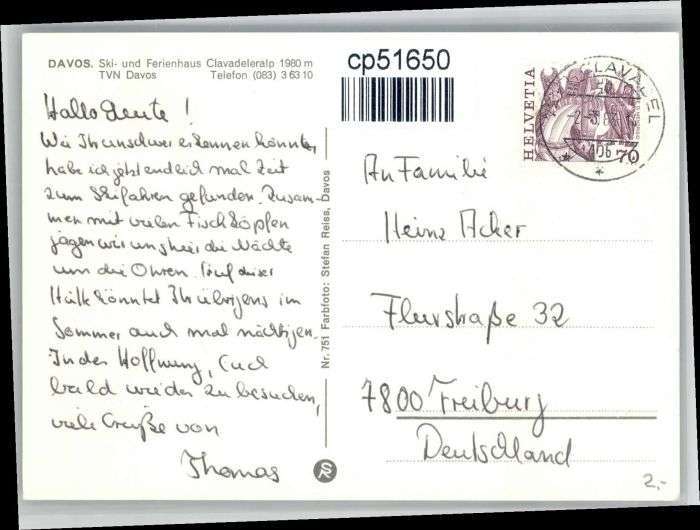 DAVOS. Ski- und Ferienhaus Clavadeleralp 1980 m
TVN Davos Telefon (083) 3 63 10
cp51650
HELVETIA
CLAVADEL
70
Hallo Leute!
Wie Ihr unschwer erkennen könntet,
habe ich jetzt endlich mal Zeit
zum Skifahren gefunden. Zusam-
men mit vielen Fischköpfen
jagen wir uns hier die Nächte
um die Ohren. Auf dieser
Hütte könntet Ihr übrigens im
Sommer auch mal nächtigen.
In der Hoffnung, Euch
bald wieder zu besuchen,
viele Grüße von
Thomas
Nr. 751 Farbfoto: Stefan Reiss, Davos
SR
An Familie
Heinz Acker
Flurstraße 32
7800 Freiburg
Deutschland
2,-